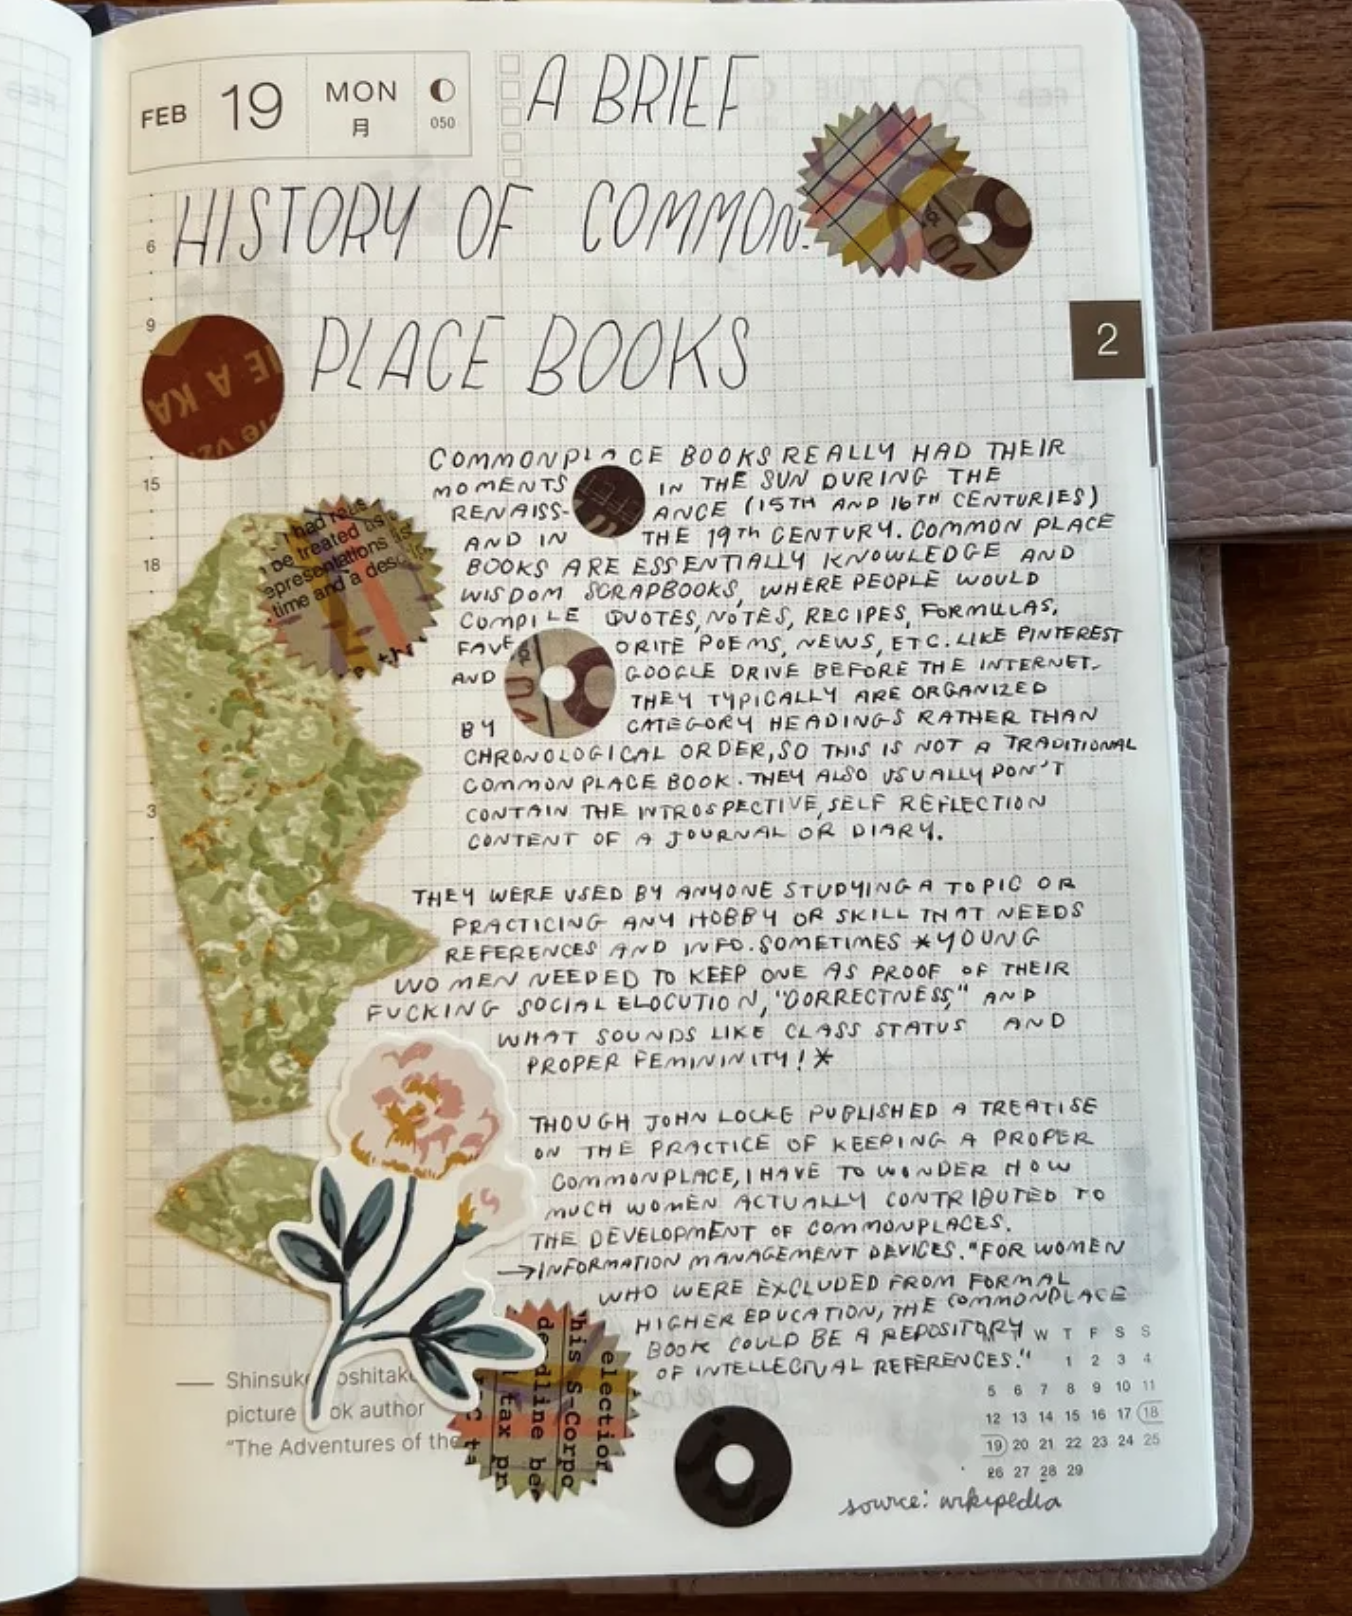 FEB 19 MON 月 050
A BRIEF
HISTORY OF COMMON-
PLACE BOOKS
2
6
9
15
18
3
IE A KA
had
be treated as
epresentations is
time and a desc
COMMONPLACE BOOKS REALLY HAD THEIR
MOMENTS IN THE SUN DURING THE
RENAISS- ANCE (15TH AND 16TH CENTURIES)
AND IN THE 19TH CENTURY. COMMON PLACE
BOOKS ARE ESSENTIALLY KNOWLEDGE AND
WISDOM SCRAPBOOKS, WHERE PEOPLE WOULD
COMPILE QUOTES, NOTES, RECIPES, FORMULAS,
FAVE ORITE POEMS, NEWS, ETC. LIKE PINTEREST
AND GOOGLE DRIVE BEFORE THE INTERNET.
THEY TYPICALLY ARE ORGANIZED
BY CATEGORY HEADINGS RATHER THAN
CHRONOLOGICAL ORDER, SO THIS IS NOT A TRADITIONAL
COMMONPLACE BOOK. THEY ALSO USUALLY DON'T
CONTAIN THE INTROSPECTIVE, SELF REFLECTION
CONTENT OF A JOURNAL OR DIARY.
THEY WERE USED BY ANYONE STUDYING A TOPIC OR
PRACTICING ANY HOBBY OR SKILL THAT NEEDS
REFERENCES AND INFO. SOMETIMES *YOUNG
WOMEN NEEDED TO KEEP ONE AS PROOF OF THEIR
FUCKING SOCIAL ELOCUTION, "CORRECTNESS," AND
WHAT SOUNDS LIKE CLASS STATUS AND
PROPER FEMININITY!*
THOUGH JOHN LOCKE PUBLISHED A TREATISE
ON THE PRACTICE OF KEEPING A PROPER
COMMONPLACE, I HAVE TO WONDER HOW
MUCH WOMEN ACTUALLY CONTRIBUTED TO
THE DEVELOPMENT OF COMMONPLACES.
→INFORMATION MANAGEMENT DEVICES. "FOR WOMEN
WHO WERE EXCLUDED FROM FORMAL
HIGHER EDUCATION, THE COMMONPLACE
BOOK COULD BE A REPOSITORY
OF INTELLECTUAL REFERENCES."
W T F S S
1 2 3 4
5 6 7 8 9 10 11
12 13 14 15 16 17 18
19 20 21 22 23 24 25
26 27 28 29
— Shinsuke oshitake
picture ok author
"The Adventures of the
election
his S-Corpo
deadline be
tax pr
source: wikipedia